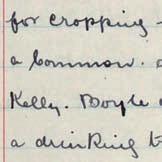 for cropping -
a Common.
Kelly. Boyle
a drinking t